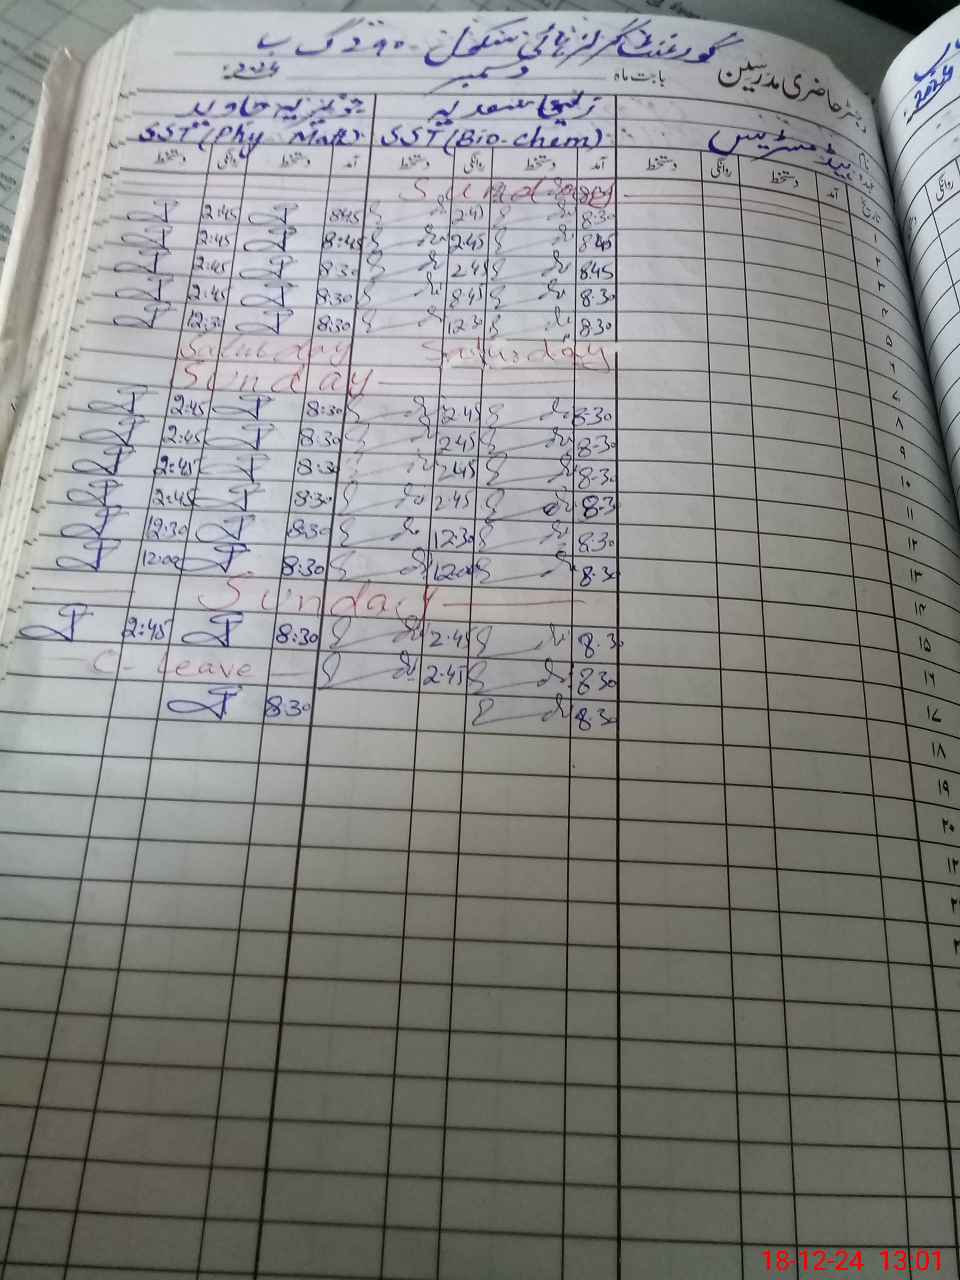 گورنمنٹ گرلز ہائی سکول 290 گ ب
دفتر حاضری مدرسین بابت ماہ دسمبر 2024ء
ہیڈ مسٹریس
SST (Bio-chem) SST (Phy Math)
تاریخ آمد دستخط روانگی دستخط آمد دستخط روانگی دستخط آمد دستخط روانگی دستخط
۱ Sunday
۲ 8:30 2:45 8:45 2:45
۳ 8:45 2:45 8:45 2:45
۴ 8:45 2:45 8:30 2:45
۵ 8:30 8:45 8:30 2:45
۶ 8:30 12:30 8:30 12:30
۷ Saturday Saturday
۸ Sunday
۹ 8:30 2:45 8:30 2:45
۱۰ 8:30 2:45 8:30 2:45
۱۱ 8:30 2:45 8:30 2:45
۱۲ 8:30 2:45 8:30 2:45
۱۳ 8:30 12:30 8:30 12:30
۱۴ 8:30 12:00 8:30 12:00
۱۵ Sunday
۱۶ 8:30 2:45 8:30 2:45
۱۷ 8:30 2:45 C-leave
۱۸ 8:30 8:30
۱۹
۲۰
18-12-24 13:01